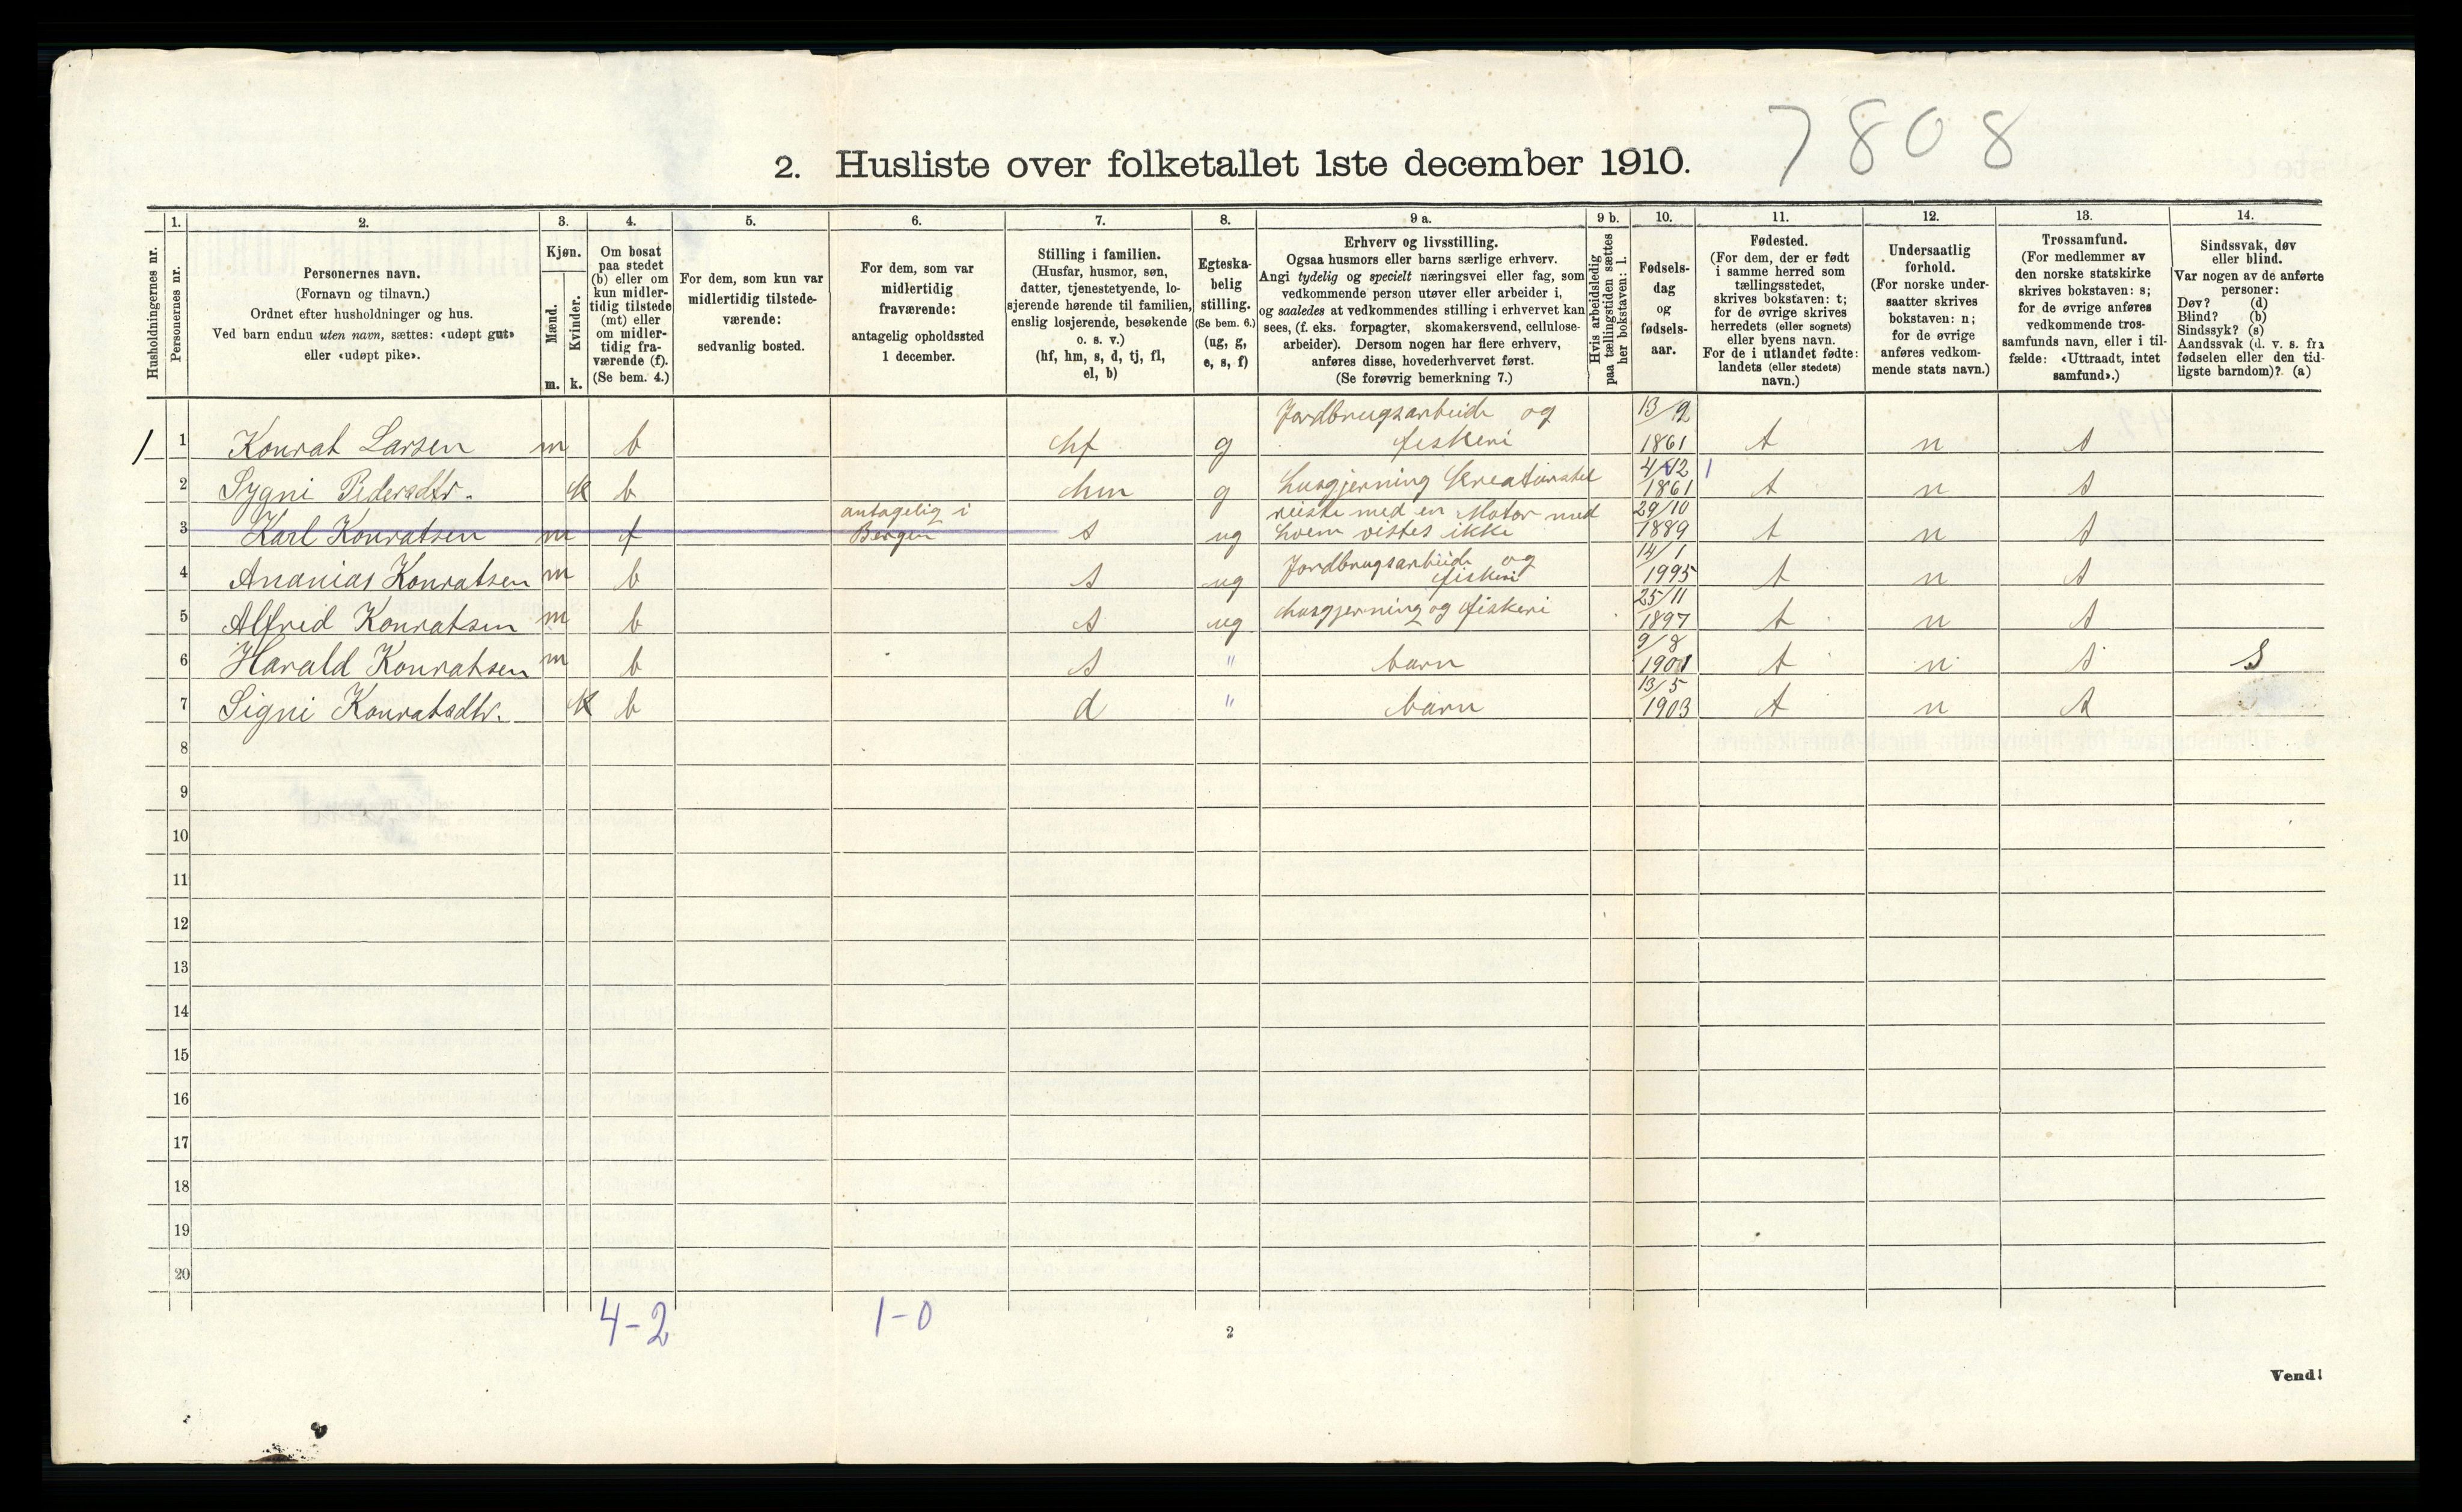 7808
2. Husliste over folketallet 1ste december 1910.
Husholdningernes nr.
1.
Personernes nr.
2.
Personernes navn.
(Fornavn og tilnavn.)
Ordnet efter husholdninger og hus.
Ved barn endnu uten navn, sættes: «udøpt gut»
eller «udøpt pike».
3.
Kjøn.
Mænd.
Kvinder.
m. k.
4.
Om bosat
paa stedet
(b) eller om
kun midler-
tidig tilstede
(mt) eller
om midler-
tidig fra-
værende (f).
(Se bem. 4.)
5.
For dem, som kun var
midlertidig tilstede-
værende:
sedvanlig bosted.
6.
For dem, som var
midlertidig
fraværende:
antagelig opholdssted
1 december.
7.
Stilling i familien.
(Husfar, husmor, søn,
datter, tjenestetyende, lo-
sjerende hørende til familien,
enslig losjerende, besøkende
o. s. v.)
(hf, hm, s, d, tj, fl,
el, b)
8.
Egteska-
belig
stilling.
(Se bem. 6.)
(ug, g,
e, s, f)
9 a.
Erhverv og livsstilling.
Ogsaa husmors eller barns særlige erhverv.
Angi tydelig og specielt næringsvei eller fag, som
vedkommende person utøver eller arbeider i,
og saaledes at vedkommendes stilling i erhvervet kan
sees, (f. eks. forpagter, skomakersvend, cellulose-
arbeider). Dersom nogen har flere erhverv,
anføres disse, hovederhvervet først.
(Se forøvrig bemerkning 7.)
9 b.
Hvis arbeidsledig
paa tællingstiden sættes
her bokstaven: l.
10.
Fødsels-
dag
og
fødsels-
aar.
11.
Fødested.
(For dem, der er født
i samme herred som
tællingsstedet,
skrives bokstaven: t;
for de øvrige skrives
herredets (eller sognets)
eller byens navn.
For de i utlandet fødte:
landets (eller stedets)
navn.)
12.
Undersaatlig
forhold.
(For norske under-
saatter skrives
bokstaven: n;
for de øvrige
anføres vedkom-
mende stats navn.)
13.
Trossamfund.
(For medlemmer av
den norske statskirke
skrives bokstaven: s;
for de øvrige anføres
vedkommende tros-
samfunds navn, eller i til-
fælde: «Uttraadt, intet
samfund».)
14.
Sindssvak, døv
eller blind.
Var nogen av de anførte
personer:
Døv? (d)
Blind? (b)
Sindssyk? (s)
Aandssvak (d. v. s. fra
fødselen eller den tid-
ligste barndom)? (a)
1 1 Konrat Larsen m b hf g Jordbrugsarbeide og fiskeri 13/9 1861 t n s
2 Sygni Pedersdtr. k b hm g husgjerning kreaturstel 4/12 1861 t n s
3 Karl Konratsen m f antagelig i Bergen s ug reiste med en Motor med hvem vistes ikke 29/10 1889 t n s
4 Ananias Konratsen m b s ug Jordbrugsarbeide og fiskeri 14/1 1995 t n s
5 Alfred Konratsen m b s ug husgjerning og fiskeri 25/11 1897 t n s
6 Harald Konratsen m b s " barn 9/8 1901 t n s S
7 Signi Konratsdtr. k b d " barn 13/5 1903 t n s
8
9
10
11
12
13
14
15
16
17
18
19
20
4-2 1-0
2
Vend!